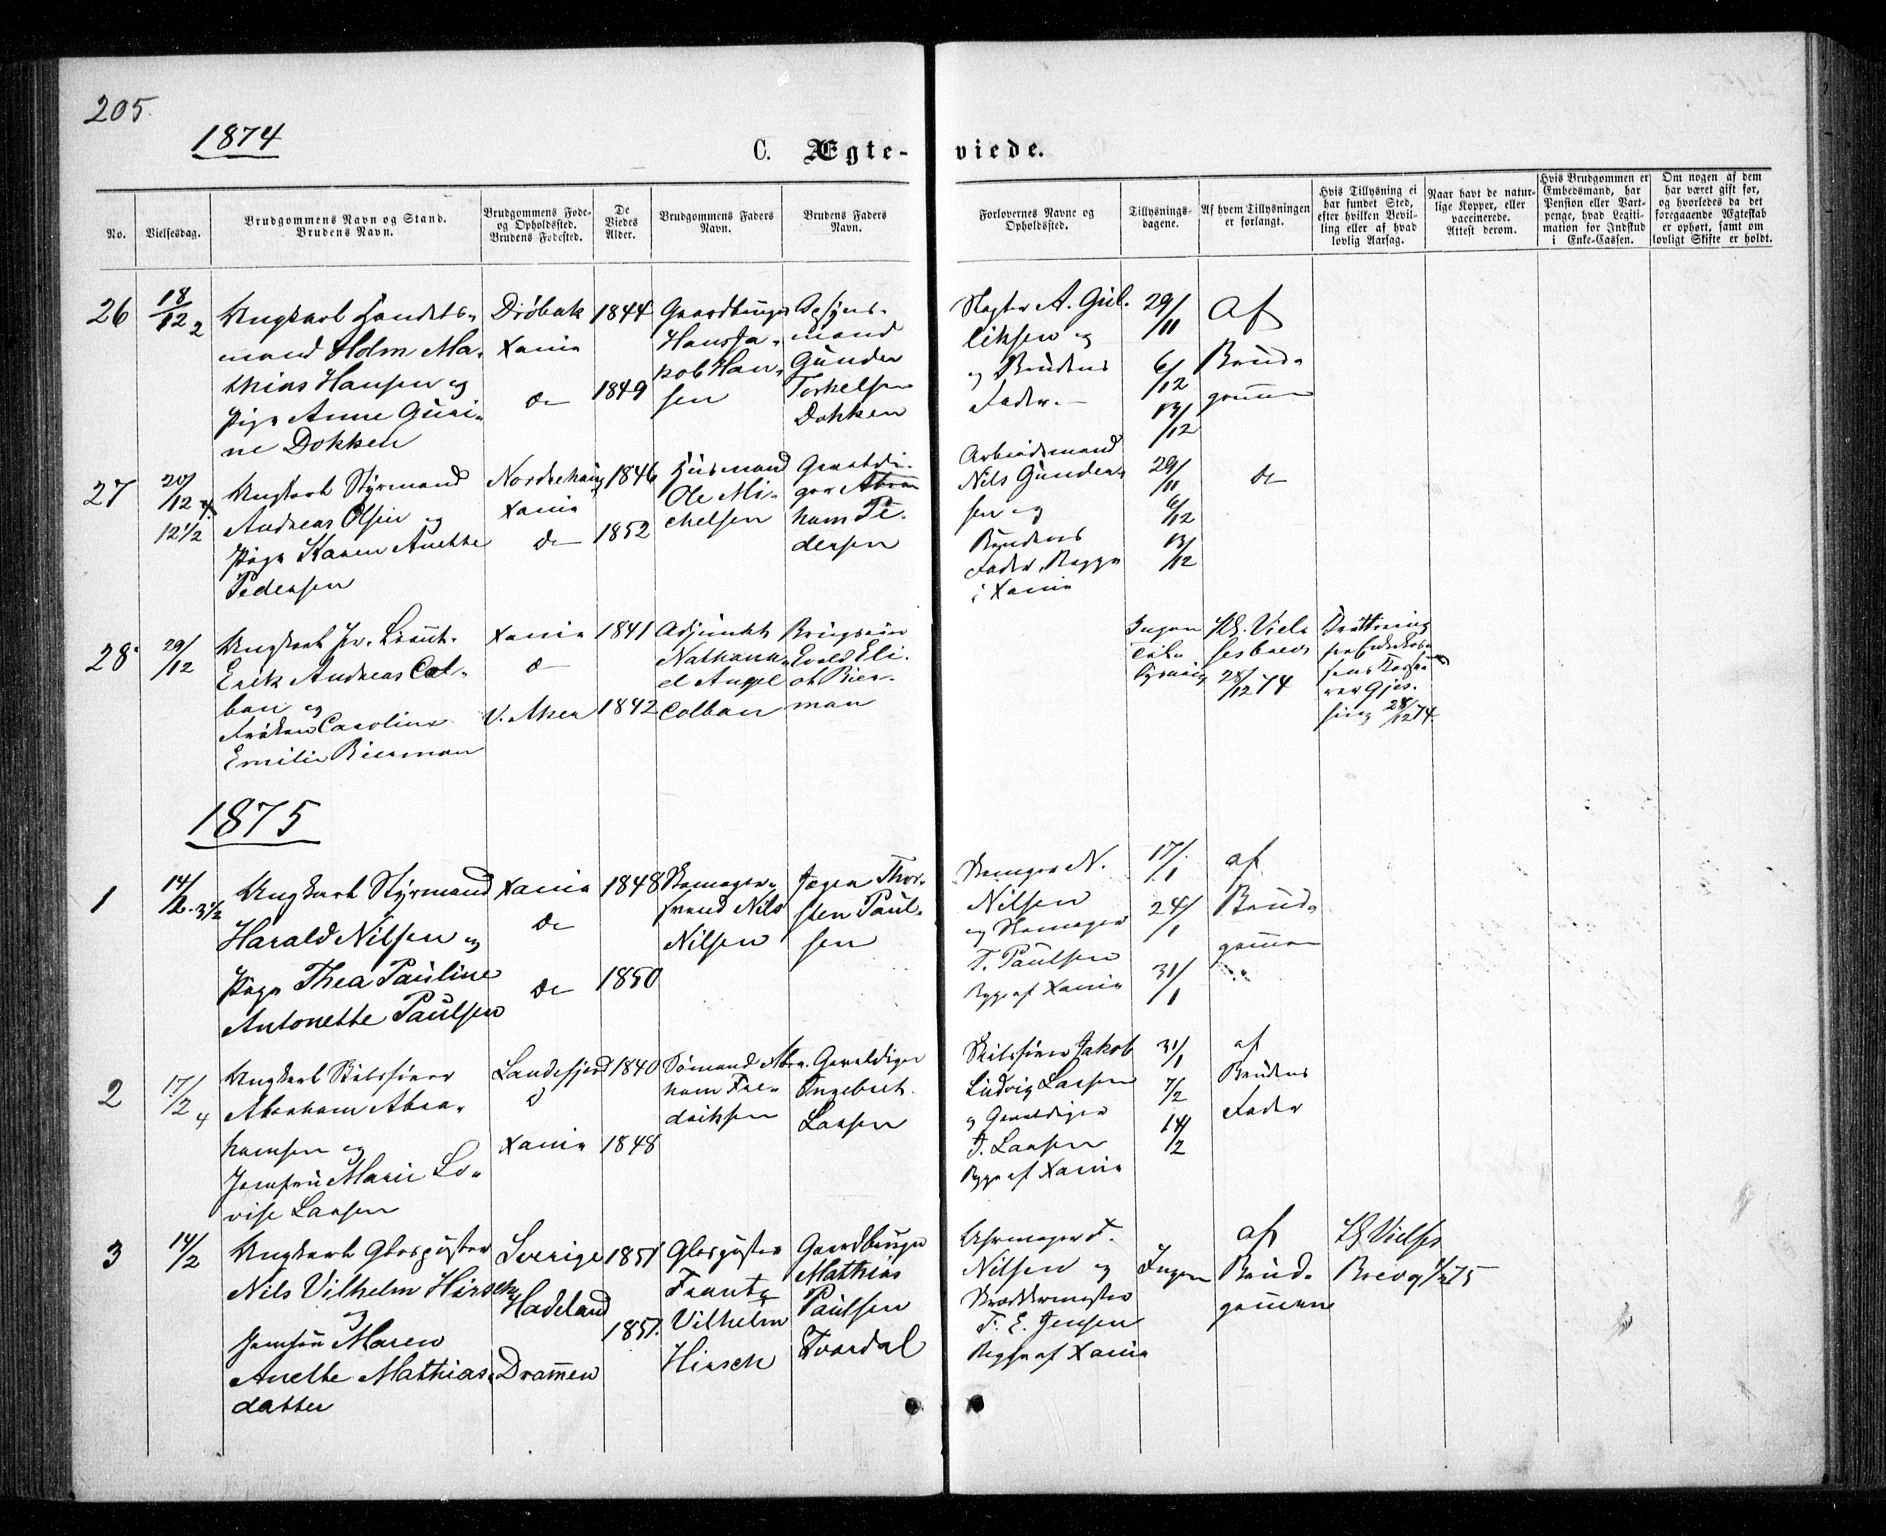 205.
1874
C. Ægte-viede.
No.
Vielsesdag.
Brudgommens Navn og Stand.
Brudens Navn.
Brudgommens Føde-
og Opholdssted.
Brudens Fødested.
De
Viedes
Alder.
Brudgommens Faders
Navn.
Brudens Faders
Navn.
Forlovernes Navne og
Opholdssted.
Tillysnings-
dagene.
Af hvem Tillysningen
er forlangt.
Hvis Tillysning ei
har fundet Sted,
efter hvilken Bevil-
ling eller af hvad
lovlig Aarsag.
Naar havt de natur-
lige Kopper, eller
vaccinerede.
Attest derom.
Hvis Brudgommen er
Embedsmand, har
Pension eller Vart-
penge, hvad Legiti-
mation for Indskud
i Enke-Cassen.
Om nogen af dem
har været gift før,
og hvorledes da det
foregaaende Ægteskab
er ophørt, samt om
lovligt Skifte er holdt.
26
18/12 2
Ungkarl Handels-
mand Holm Ma-
thias Hansen og
Pige Anne Guri-
ne Dokken
Drøbak
Xania
do
1844
1849
Gaardbruger
Hans Ja-
kob Han-
sen
Opsyns-
mand
Gunder
Torkelsen
Dokken
A. Gul-
liksen og
og Brudens
Fader
29/11
6/12
13/12
af
Brud-
gommen
27
20/12 4
12 1/2
Ungkarl Styrmand
Andreas Olsen og
Pige Karen Anette
Pedersen
Norderhaug
Xania
do
1846
1852
Husmand
Ole Mi-
chelsen
Gevaldi-
ger Abra-
ham Pe-
dersen
Arbeidsmand
Nils Gunder-
sen og
Brudens
Fader, Begge
i Xania
29/11
6/12
13/12
do
28
29/12
Ungkarl Pr. Lieut.
Erik Andreas Col-
ban og
Frøken Caroline
Emilie Bierman
Xania
do
V. Aker
1841
1842
Adjunkt
Nathana-
el Angel
Colban
Brugseier
Evald Eli-
ot Bier-
man
Ingen
Vielse
sesbrev
28/12 74
Gjes-
sing 28/12 74.
1875
1
14/2. 3 1/2
Ungkarl Styrmand
Harald Nilsen og
Pige Thea Pauline
Antonette Paulsen
Xania
do
do
1848
1850
Skomager-
svend Nils
Nilsen
Jøger Thor-
sten Paul-
sen
Skomager N.
Nilsen
og Skomager
T. Paulsen
Begge af Xania
17/1
24/1
31/1
af
Brud-
gommen
2
17/2 4
Ungkarl Skibsfører
Abraham Abra-
hamsen og
Jomfru Marie Lo-
vise Larsen
Sandefjord
d
Xania
1840
1848
Sømand Abra-
ham Fre-
driksen
Gevaldiger
Ingebret
Larsen
Skibsfører Jakob
Ludvig Larsen
og Gevaldiger
I. Larsen
Begge af Xania
31/1
7/2
14/2
af
Brudens
Fader
3
14/2
Ungkarl Glaspuster
Nils Vilhelm Hirsch
og
Jomfru Maren
Anette Mathias-
datter
Sverige
Hadeland
Drammen
1851
1851.
Glaspuster
Frantz
Vilhelm
Hirsch
Gaardbruger
Mathias
Paulsen
Tvordal
Uhrmager F.
Nilsen og
Skræddermester
F. E. Jensen
Begge af Xania
Ingen
af
Brud-
gommen
Vielses
Brev 9/2 75